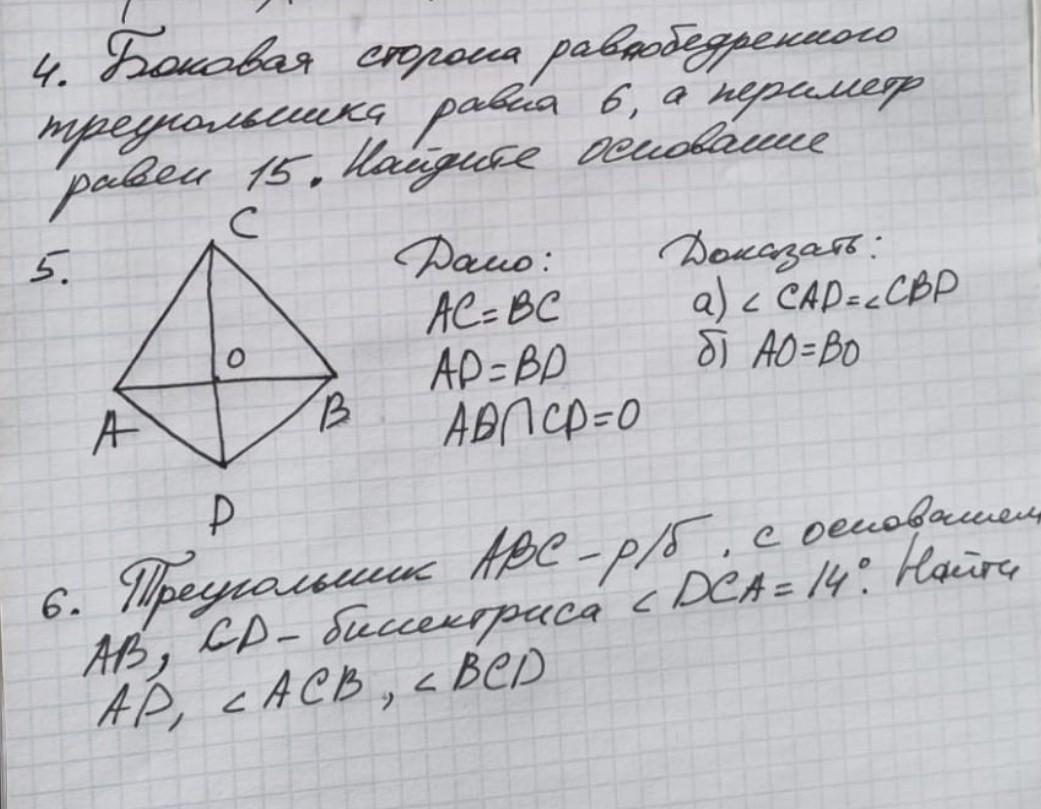 4. Боковая сторона равнобедренного
треугольника равна 6, а периметр
равен 15. Найдите основание
C
5.
Дано:
Доказать:
AC=BC
а) ∠ CAD=∠CBD
O
AD=BD
б) AO=BO
A
B
AB∩CD=O
D
6. Треугольник ABC – р/б, с основанием
AB, CD – биссектриса ∠ DCA = 14°. Найти
AD, ∠ ACB, ∠ BCD